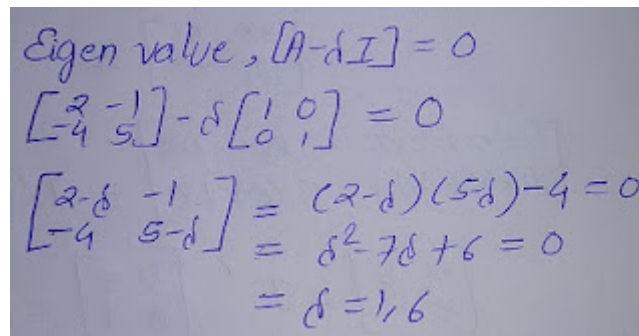 Eigen value, [A-δI] = 0
[2 -1
-4 5] - δ[1 0
0 1] = 0
[2-δ -1
-4 5-δ] = (2-δ)(5-δ)-4 = 0
= δ²-7δ+6 = 0
= δ = 1,6